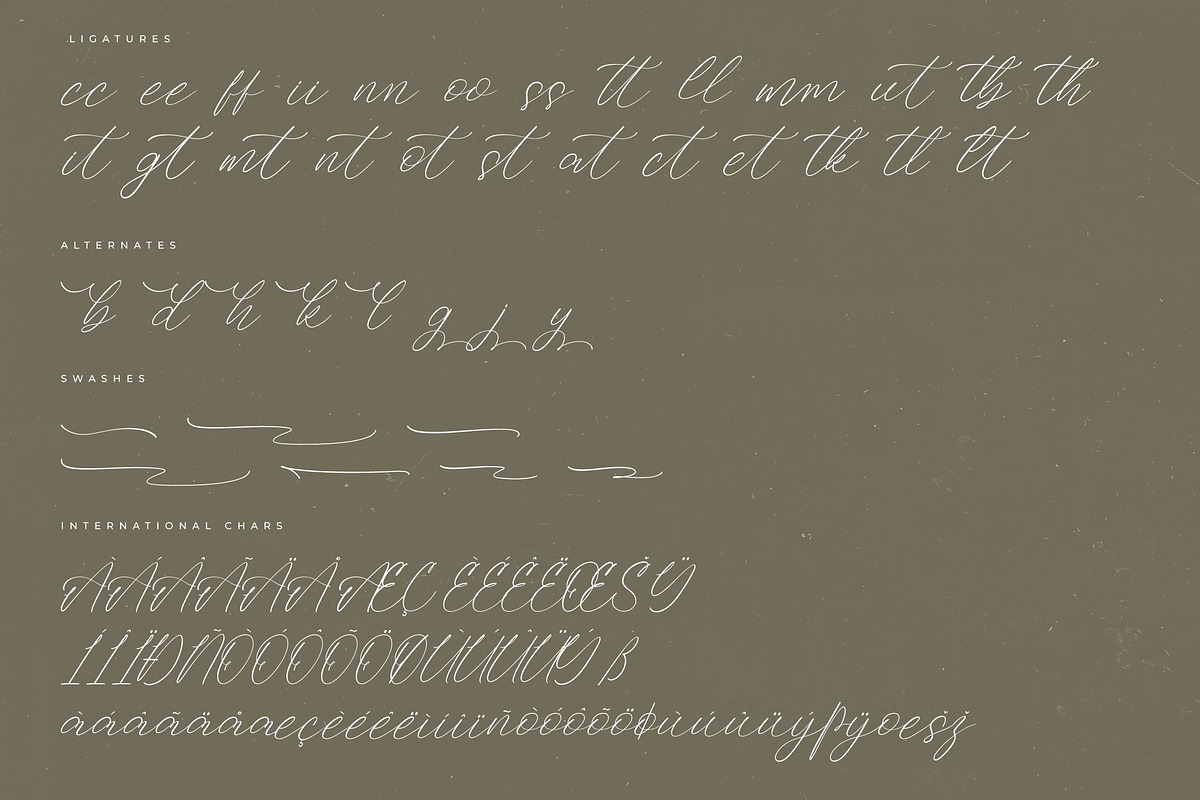 LIGATURES
cc ee ff ii nn oo ss tt ll mm ut tb th
it gt mt nt ot st at ct et tk tl lt
ALTERNATES
b d h k l g j y
SWASHES
INTERNATIONAL CHARS
ÀÁÂÃÄÅÆÇÈÉÊËŒŠŸ
ÍÎÏÐÑÒÓÔÕÖØÙÚÛÜÝ ß
àáâãäåæçèéêëìíîïñòóôõöøùúûüýþÿœšž